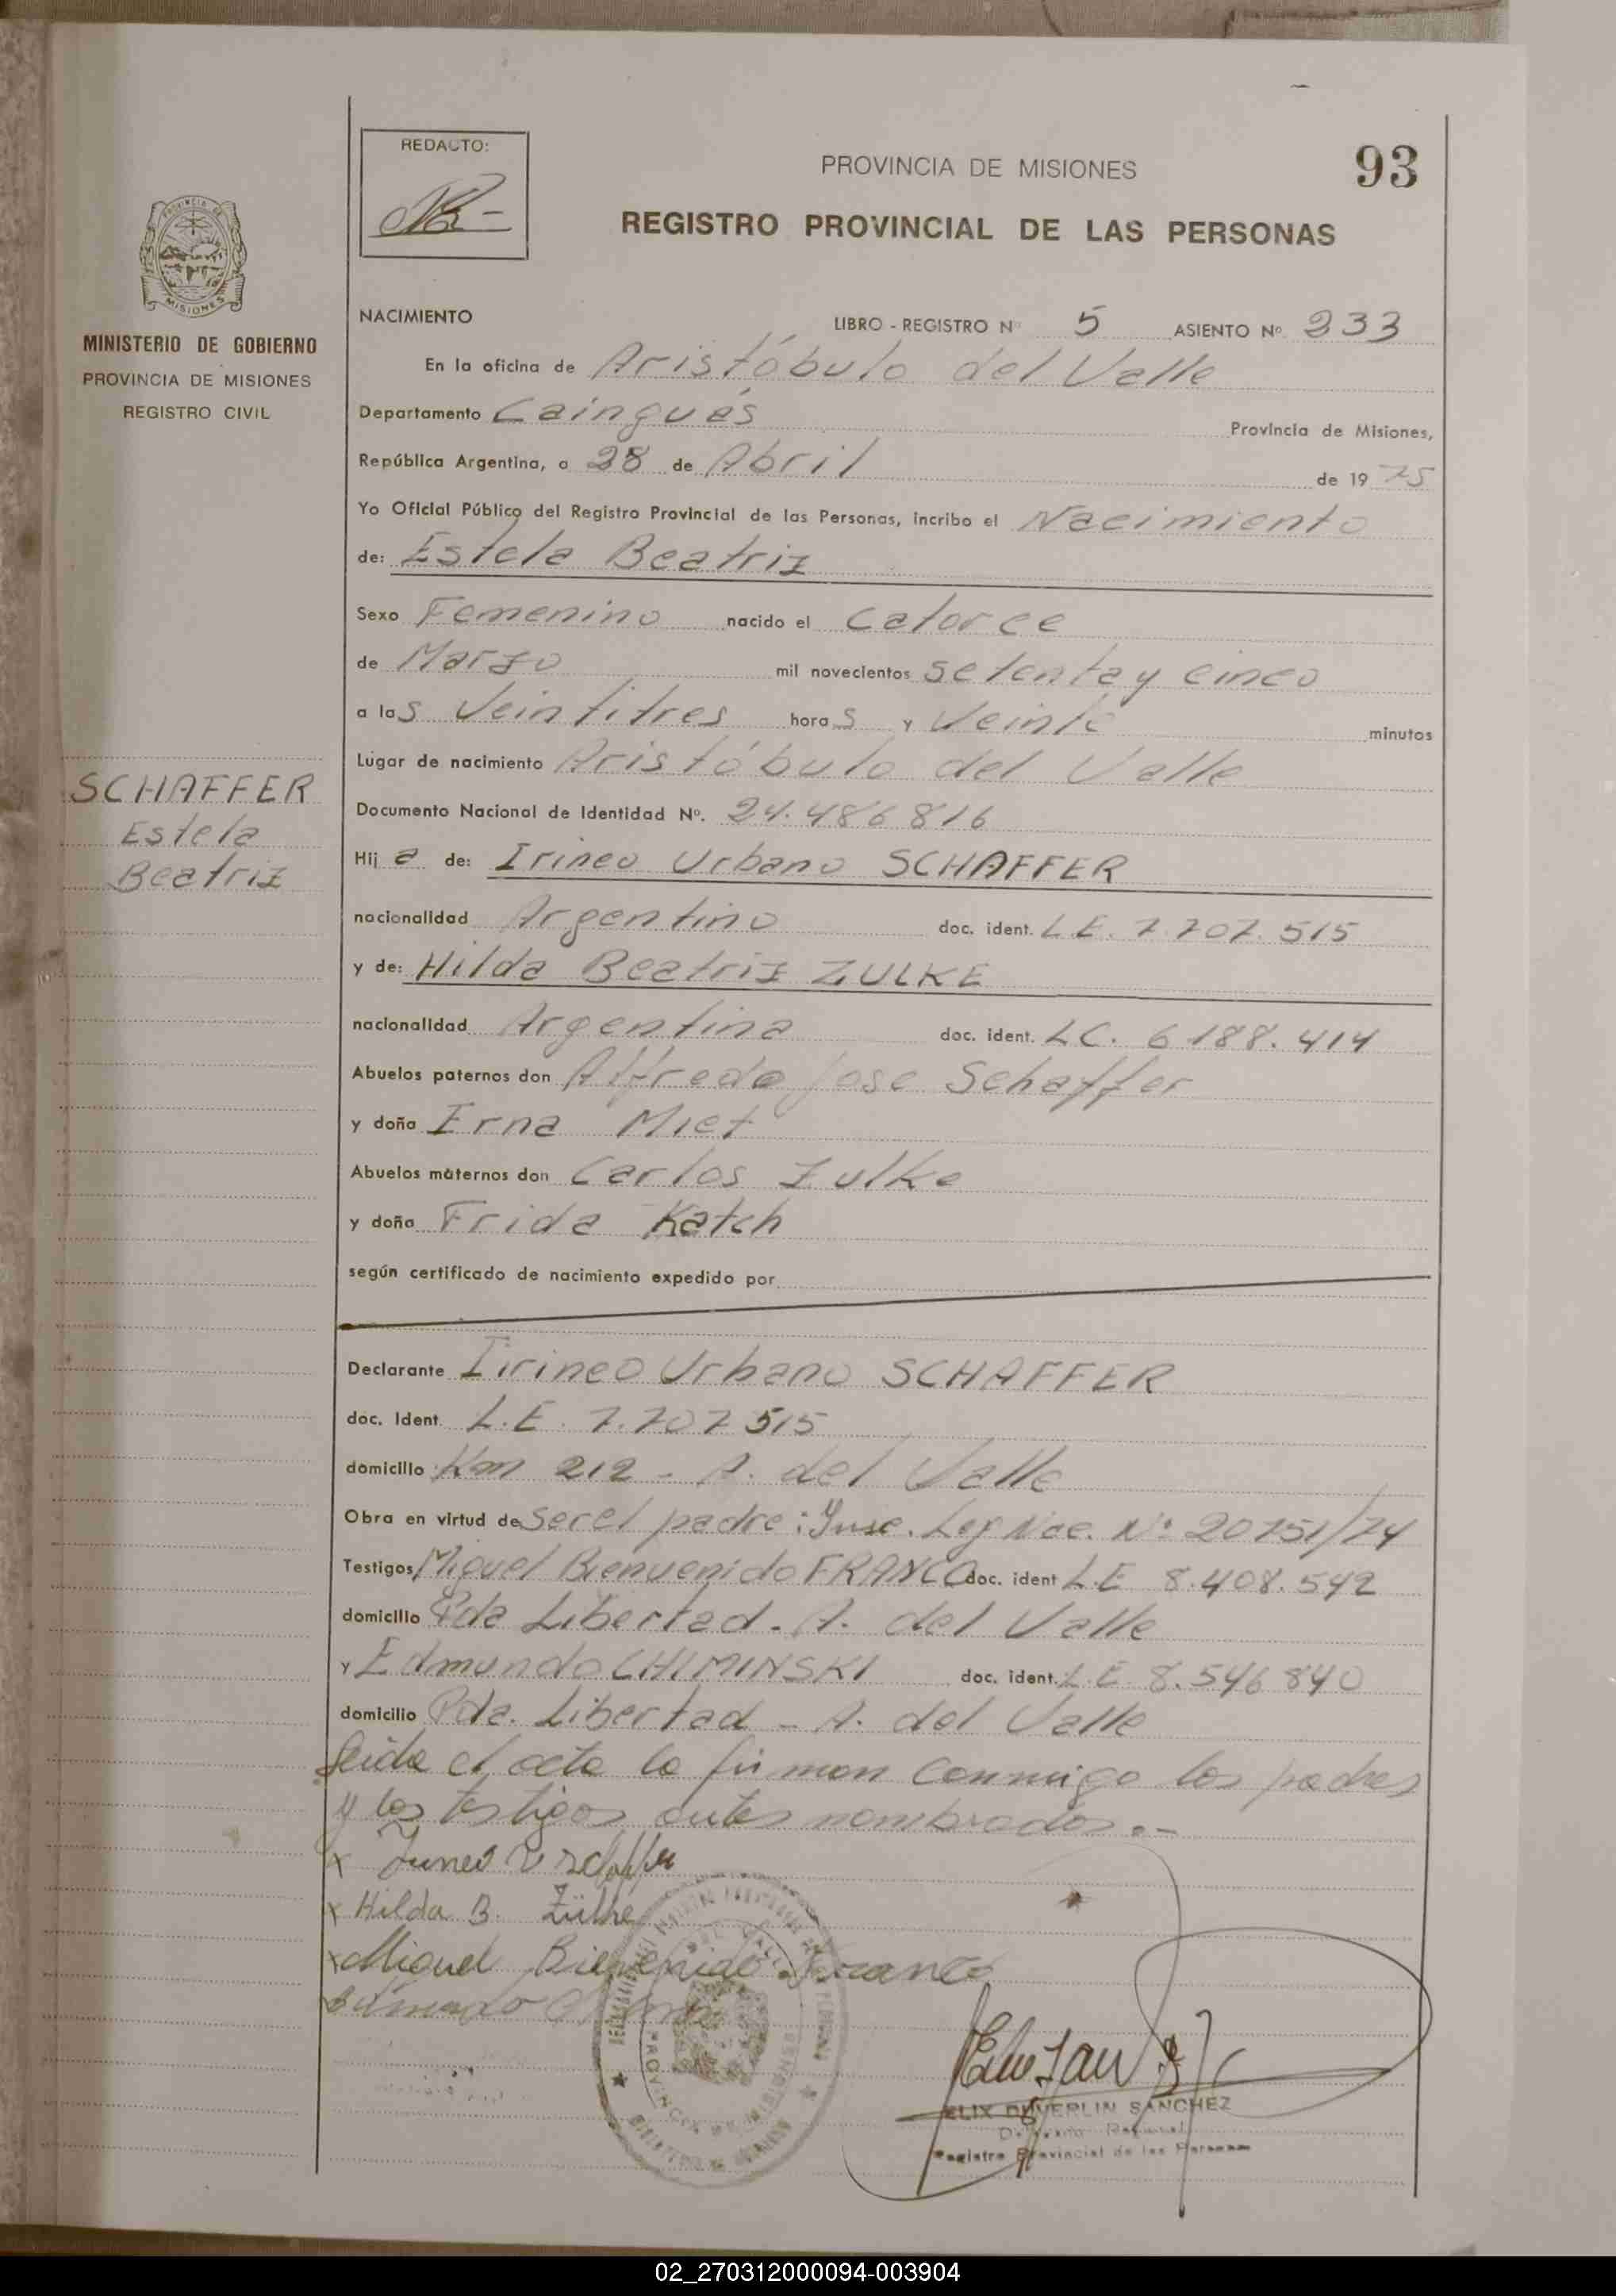 REDACTO:
PROVINCIA DE MISIONES
93
REGISTRO PROVINCIAL DE LAS PERSONAS
MISIONES
MINISTERIO DE GOBIERNO
PROVINCIA DE MISIONES
REGISTRO CIVIL
NACIMIENTO
LIBRO - REGISTRO Nº 5 ASIENTO Nº 233
En la oficina de Aristóbulo del Valle
Departamento Cainguás Provincia de Misiones,
República Argentina, a 28 de Abril de 1975
Yo Oficial Público del Registro Provincial de las Personas, incribo el Nacimiento
de: Estela Beatriz
Sexo Femenino nacido el Catorce
de Marzo mil novecientos setenta y cinco
a las Veintitres horas y Veinte minutos
Lugar de nacimiento Aristóbulo del Valle
SCHAFFER
Estela
Beatriz
Documento Nacional de Identidad Nº. 24.486816
Hija de: Irineo Urbano SCHAFFER
nacionalidad Argentino doc. ident. L.E. 7.707.515
y de: Hilda Beatriz ZULKE
nacionalidad Argentina doc. ident. LC. 6.188.414
Abuelos paternos don Alfredo Jose Schaffer
y doña Erna Miet
Abuelos maternos don Carlos Zulke
y doña Frida Katch
según certificado de nacimiento expedido por
Declarante Iirineo Urbano SCHAFFER
doc. Ident. L.E. 7.707515
domicilio Km 212 - A. del Valle
Obra en virtud de ser el padre: Insc. Ley Nac. Nº 20751/74
Testigos Miguel Bienvenido FRANCO doc. ident L.E 8.408.542
domicilio Pda Libertad. A. del Valle
y Edmundo CHIMINSKI doc. ident. L.E. 8.546840
domicilio Pda. Libertad - A. del Valle
Leida el acta la firman conmigo los padres
y los testigos antes nombrados.-
x Irineo U Schaffer
x Hilda B. Zülke
x Miguel Bienvenido Franco
PROVINCIA DE MISIONES
SANCHEZ
Registro Provincial de las Personas
02_270312000094-003904